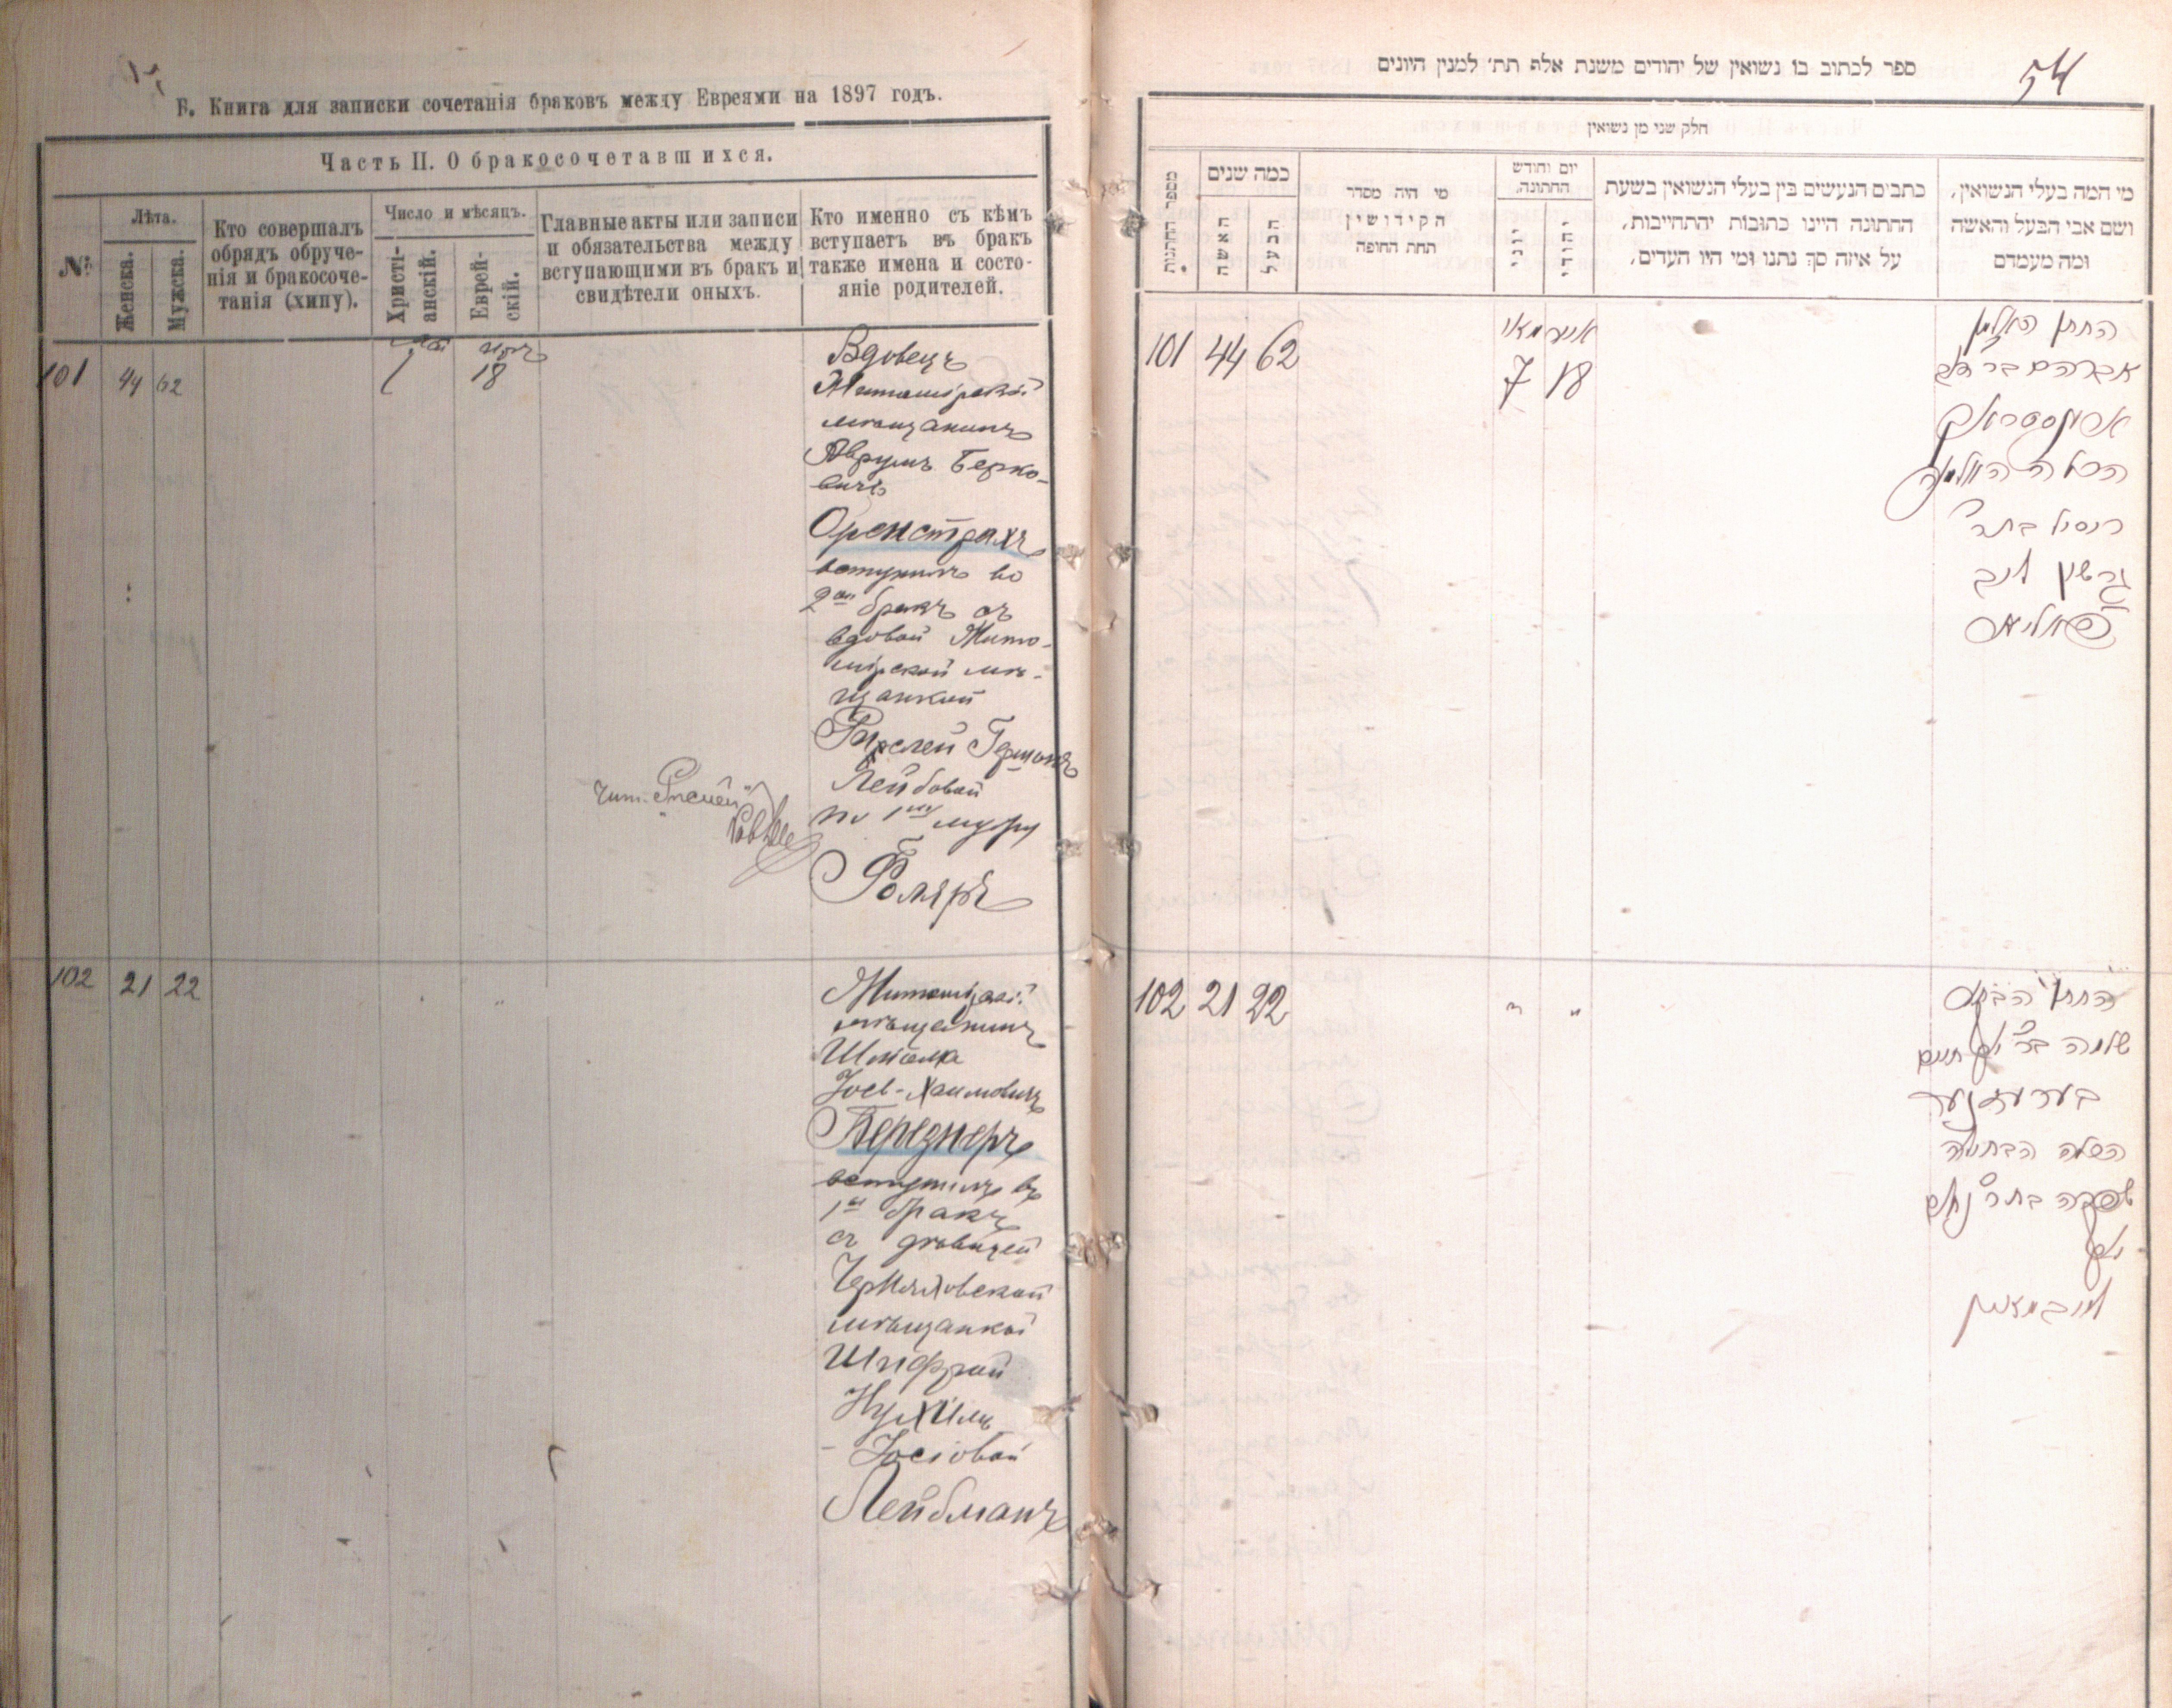 Б. Книга для записки сочетанія браковъ между Евреями на 1897 годъ.
Часть II. О бракосочетавшихся.
№
Лѣта.
Женска.
Мужска.
Кто совершалъ
обрядъ обруче-
нія и бракосоче-
танія (хипу).
Число и мѣсяцъ.
Христі-
анскій.
Еврей-
скій.
Главные акты или записи
и обязательства между
вступающими въ бракъ и
свидѣтели оныхъ.
Кто именно съ кѣмъ
вступаетъ въ бракъ
также имена и состо-
яніе родителей.
101 44 62
18
Вдовецъ
Житомірскій
мѣщанинъ
Аврумъ Берко-
вичъ
Оренстрахъ
вступилъ во
2ой бракъ съ
вдовой Жито-
мірской мѣ-
щанкой
Гершонъ
Лейбовой
по 1му мужу
Фоляръ
чит.
102 21 22
"
Житомірскій
мѣщанинъ
Шлёмка
Іосъ-Хаимовичъ
Березнеръ
вступилъ въ
1й бракъ
съ дѣвицей
Черняховской
мѣщанкой
Шифрой
Нухимъ
- Іосіовой
Лейбманъ
54
ספר לכתוב בו נשואין של יהודים משנת אלף תת׳ למנין היונים
חלק שני מן נשואין
מספר החתונות
כמה שנים
האשה
הבעל
מי היה מסדר
הקידושין
תחת החופה
יום וחודש
החתונה.
יוני
יהודי
כתבים הנעשים בין בעלי הנשואין בשעת
החתונה היינו כתובות יהתחייבות,
על איזה סך נתנו ומי היו העדים,
מי המה בעלי הנשואין,
ושם אבי הבעל והאשה
ומה מעמדם
101 44 62
אייר מאי
7 18
החתן האלמן
אברהם בר
הכלה האלמנה
בתר
גרשון ליב
102 21 22
" "
החתן הבחור
שלמה בר יוסף חיים
בערעזנער
הכלה הבתולה
שפרה בתר נחום
יוסף
ליבמאן